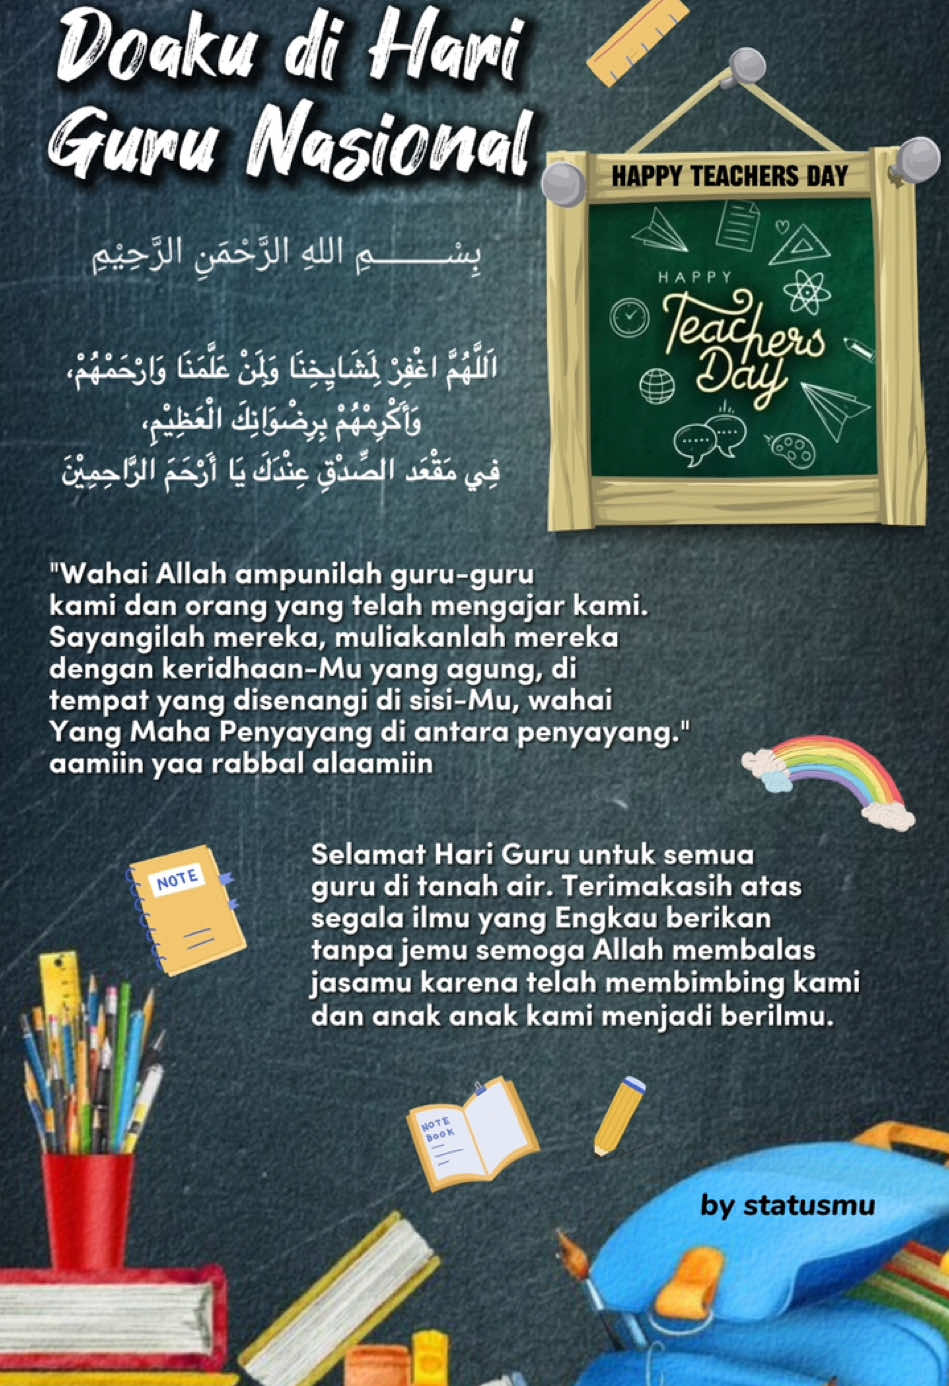 Doaku di Hari
Guru Nasional
HAPPY TEACHERS DAY
HAPPY
Teachers
Day
بِسْـــــــــمِ اللهِ الرَّحْمَنِ الرَّحِيْمِ
اَللَّهُمَّ اغْفِرْ لِمَشَايِخِنَا وَلِمَنْ عَلَّمَنَا وَارْحَمْهُمْ،
وَأَكْرِمْهُمْ بِرِضْوَانِكَ الْعَظِيْمِ،
فِي مَقْعَدِ الصِّدْقِ عِنْدَكَ يَا أَرْحَمَ الرَّاحِمِيْنَ
"Wahai Allah ampunilah guru-guru
kami dan orang yang telah mengajar kami.
Sayangilah mereka, muliakanlah mereka
dengan keridhaan-Mu yang agung, di
tempat yang disenangi di sisi-Mu, wahai
Yang Maha Penyayang di antara penyayang."
aamiin yaa rabbal alaamiin
NOTE
Selamat Hari Guru untuk semua
guru di tanah air. Terimakasih atas
segala ilmu yang Engkau berikan
tanpa jemu semoga Allah membalas
jasamu karena telah membimbing kami
dan anak anak kami menjadi berilmu.
NOTE
BOOK
by statusmu